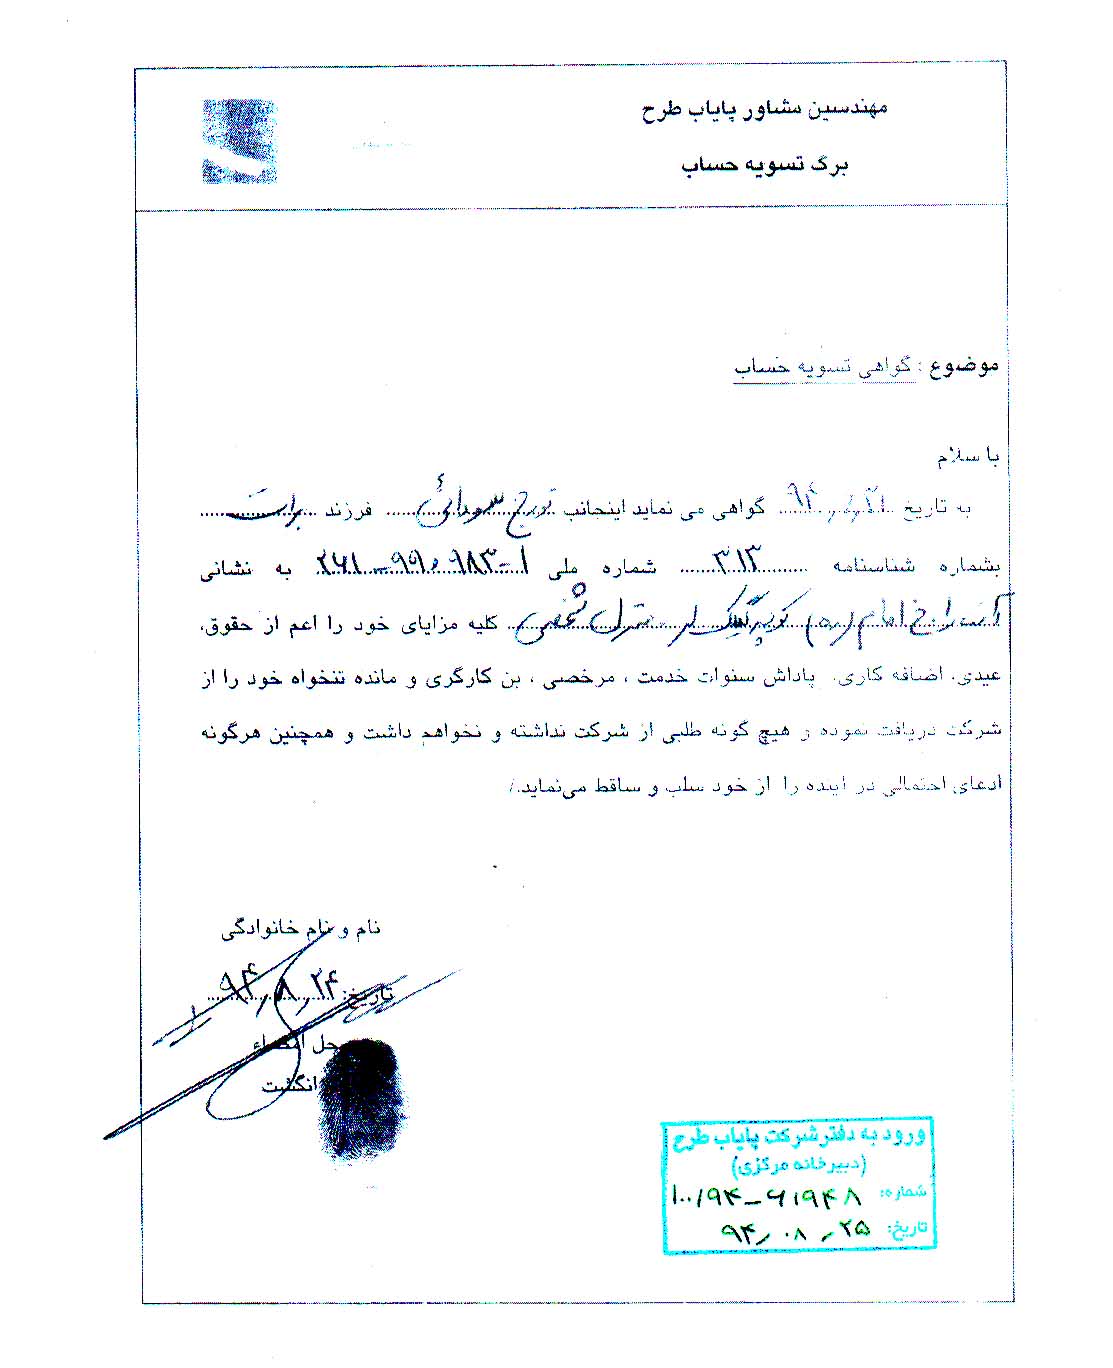 مهندسین مشاور پایاب طرح
برگ تسویه حساب
موضوع : گواهی تسویه حساب
با سلام
به تاریخ ۹۴٫۸٫۲۱ گواهی می نماید اینجانب تورج سودائی فرزند برات
بشماره شناسنامه ۳۱۳ شماره ملی به نشانی
امام (ره) منزل شخصی کلیه مزایای خود را اعم از حقوق،
عیدی، اضافه کاری، پاداش سنوات خدمت ، مرخصی ، بن کارگری و مانده تنخواه خود را از
شرکت دریافت نموده و هیچ گونه طلبی از شرکت نداشته و نخواهم داشت و همچنین هرگونه
ادعای احتمالی در آینده را از خود سلب و ساقط می‌نماید./
نام و نام خانوادگی
تاریخ: ۹۴٫۸٫۲۴
محل امضاء
انگشت
ورود به دفتر شرکت پایاب طرح
(دبیرخانه مرکزی)
شماره: ۱۰۰/۹۴-۶۱۹۴۸
تاریخ: ۹۴٫۰۸٫۲۵